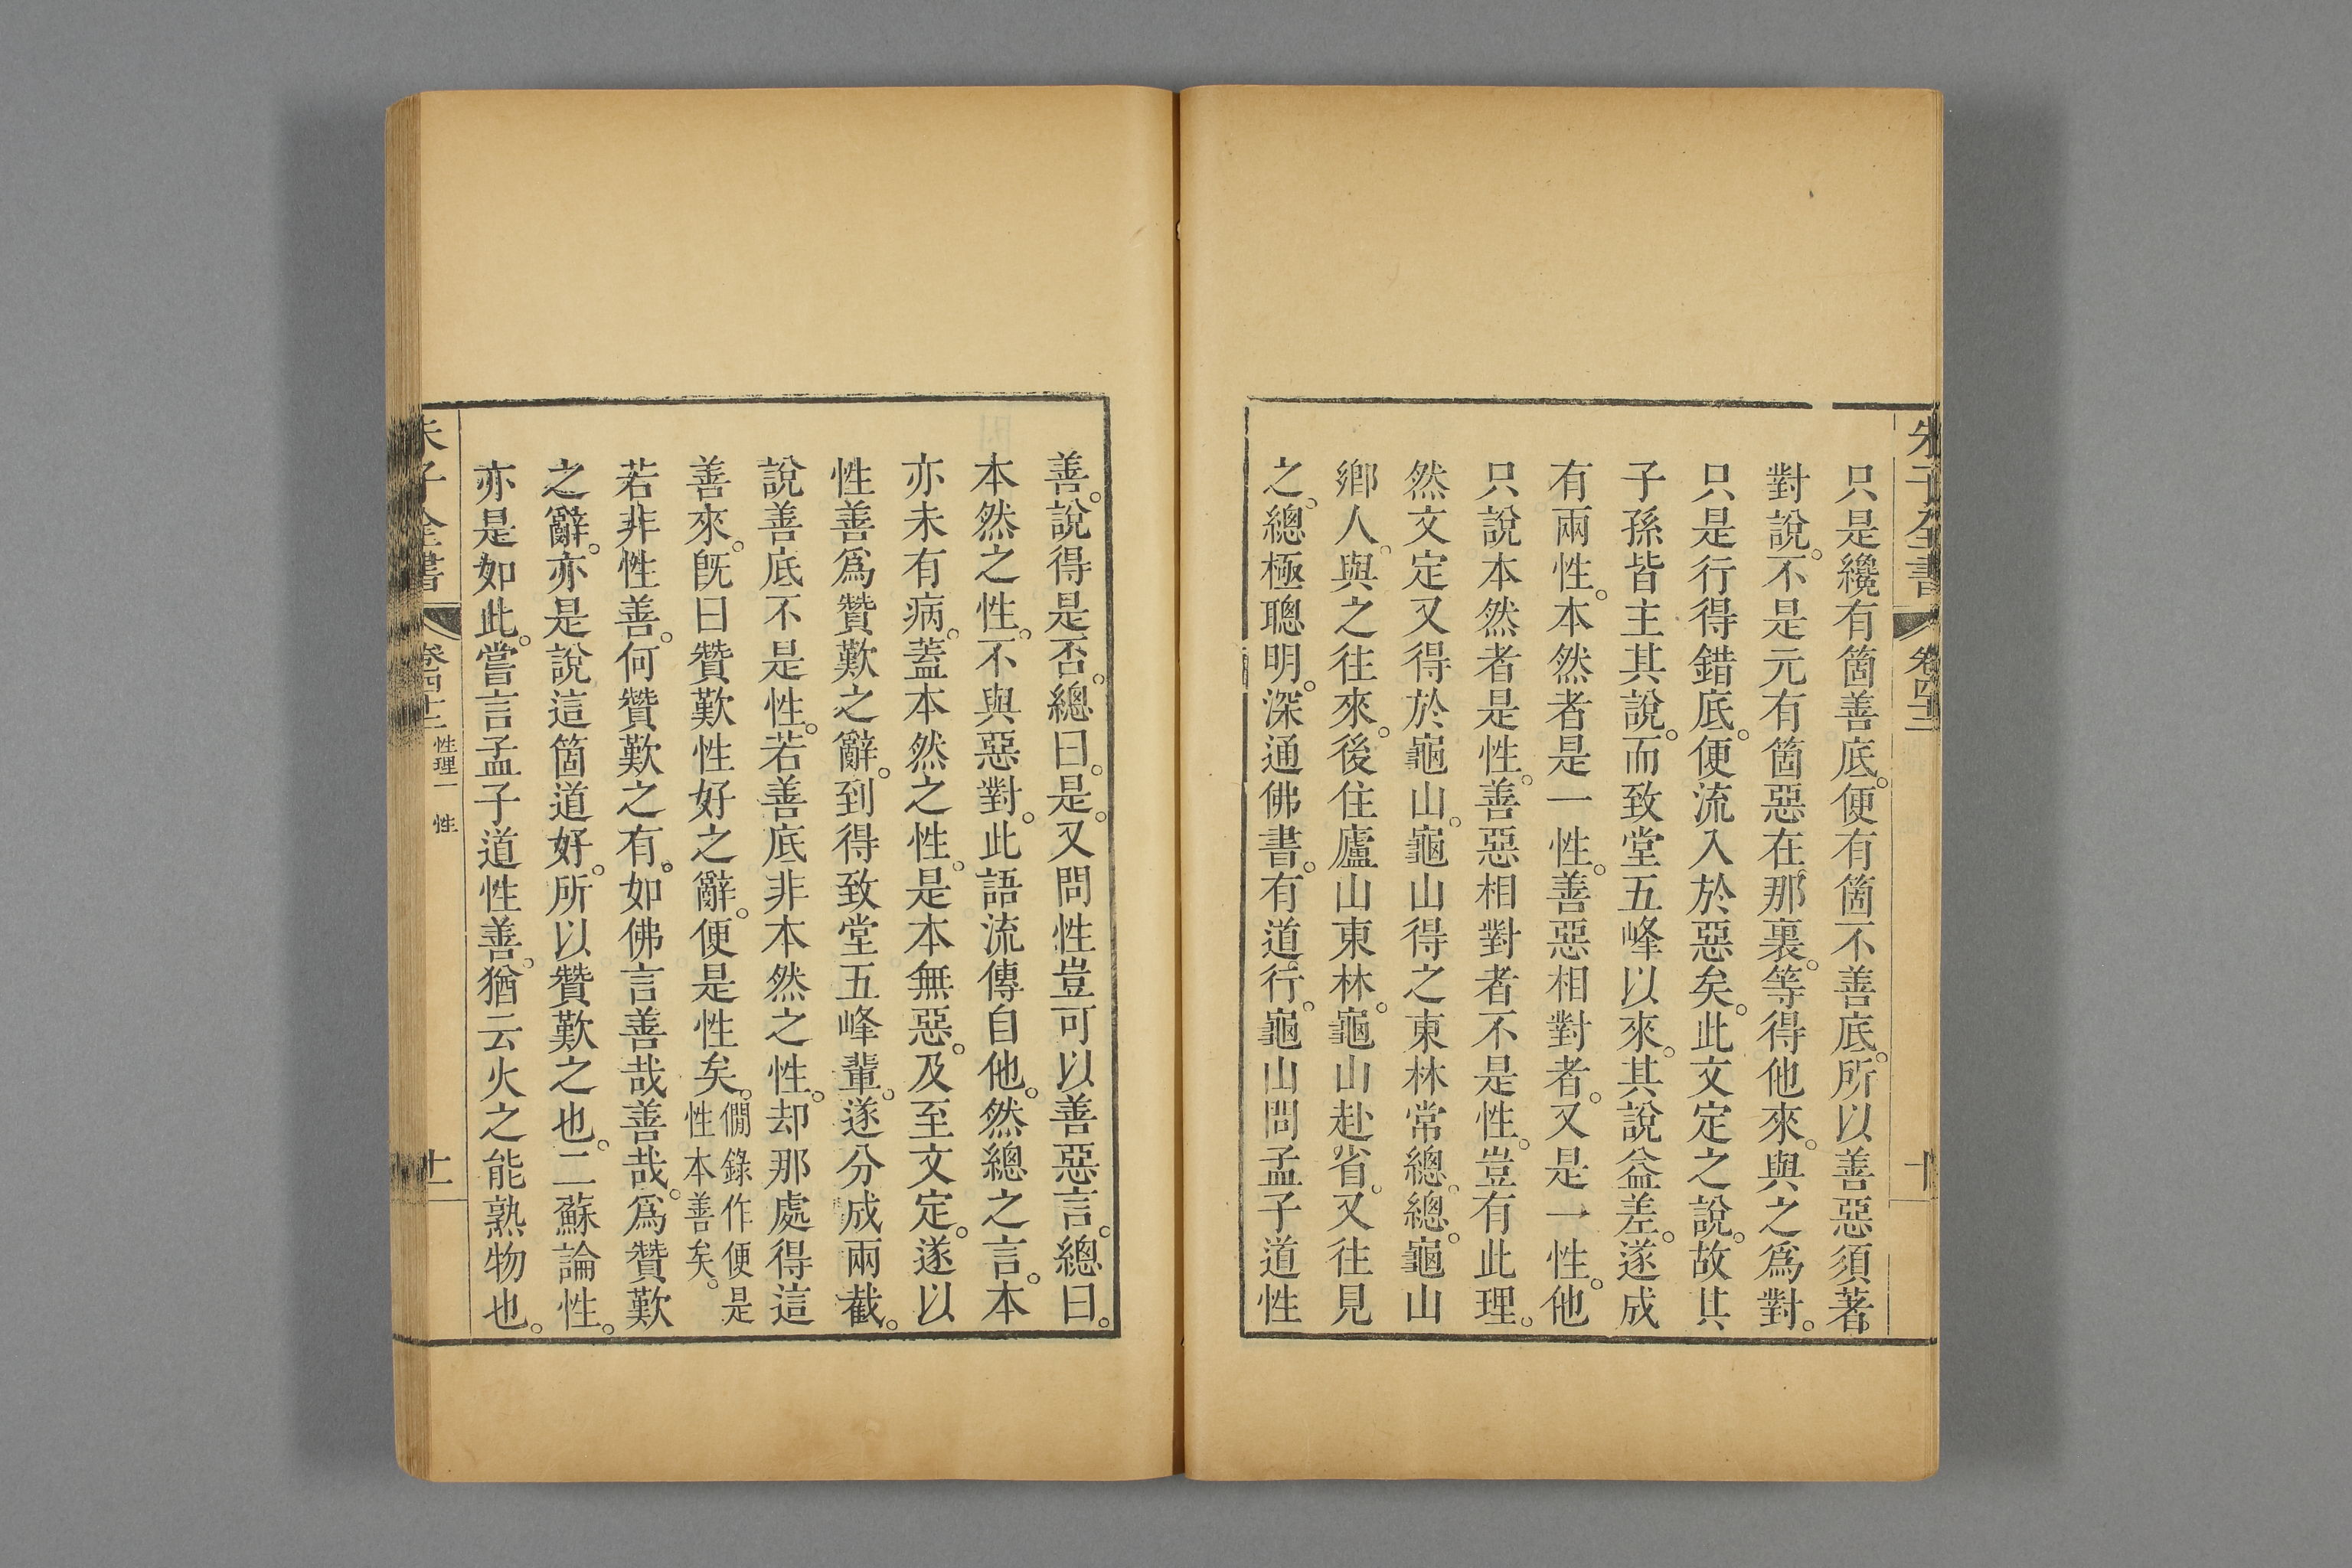 朱子全書 卷四十二 十
只是纔有箇善底。便有箇不善底。所以善惡須著
對說。不是元有箇惡在那裏。等得他來。與之爲對。
只是行得錯底。便流入於惡矣。此文定之說。故其
子孫皆主其說。而致堂五峰以來。其說益差。遂成
有兩性。本然者是一性。善惡相對者。又是一性。他
只說本然者是性。善惡相對者不是性。豈有此理。
然文定又得於龜山。龜山得之東林常總。總。龜山
鄉人。與之往來。後住廬山東林。龜山赴省。又往見
之。總極聰明。深通佛書。有道行。龜山問孟子道性
善。說得是否。總曰。是。又問性豈可以善惡言。總曰。
本然之性。不與惡對。此語流傳自他。然總之言。本
亦未有病。蓋本然之性。是本無惡。及至文定。遂以
性善爲贊歎之辭。到得致堂五峰輩。遂分成兩截。
說善底不是性。若善底非本然之性。却那處得這
善來。旣曰贊歎性好之辭。便是性矣。僩錄作便是
性本善矣。
若非性善。何贊歎之有。如佛言善哉善哉。爲贊歎
之辭。亦是說這箇道好。所以贊歎之也。二蘇論性。
亦是如此。嘗言孟子道性善。猶云火之能熟物也。
朱子全書 卷四十二 性理一 性 十一